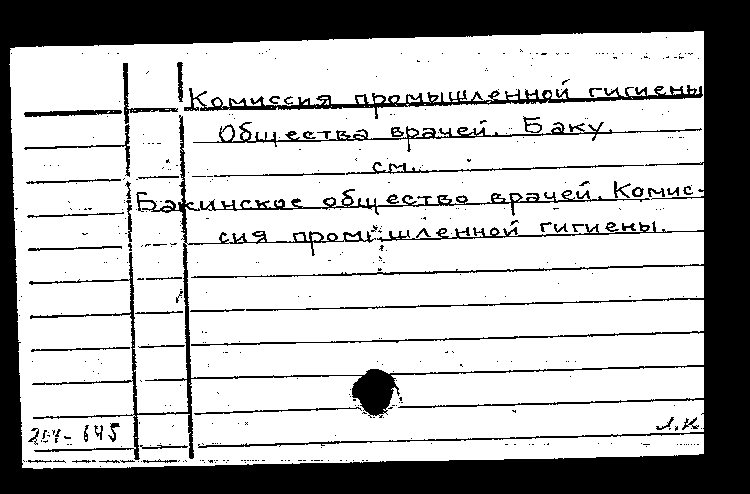 Комиссия промышленной гигиены
Общества врачей. Баку.
см.
Бакинское общество врачей. Комис-
сия промышленной гигиены.
204-645
Л.К